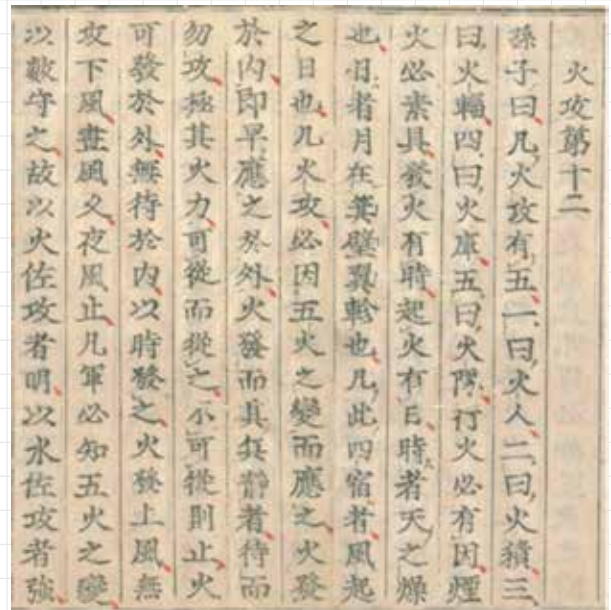 火攻第十二
孫子曰凡火攻有五一曰火人二曰火積三
曰火輜四曰火庫五曰火隊行火必有因煙
火必素具發火有時起火有日時者天之燥
也日者月在箕壁翼軫也凡此四宿者風起
之日也凡火攻必因五火之變而應之火發
於内即早應之於外火發而其兵靜者待而
勿攻極其火力可從而從之不可從則止火
可發於外無待於内以時發之火發上風無
攻下風晝風久夜風止凡軍必知五火之變
以數守之故以火佐攻者明以水佐攻者強